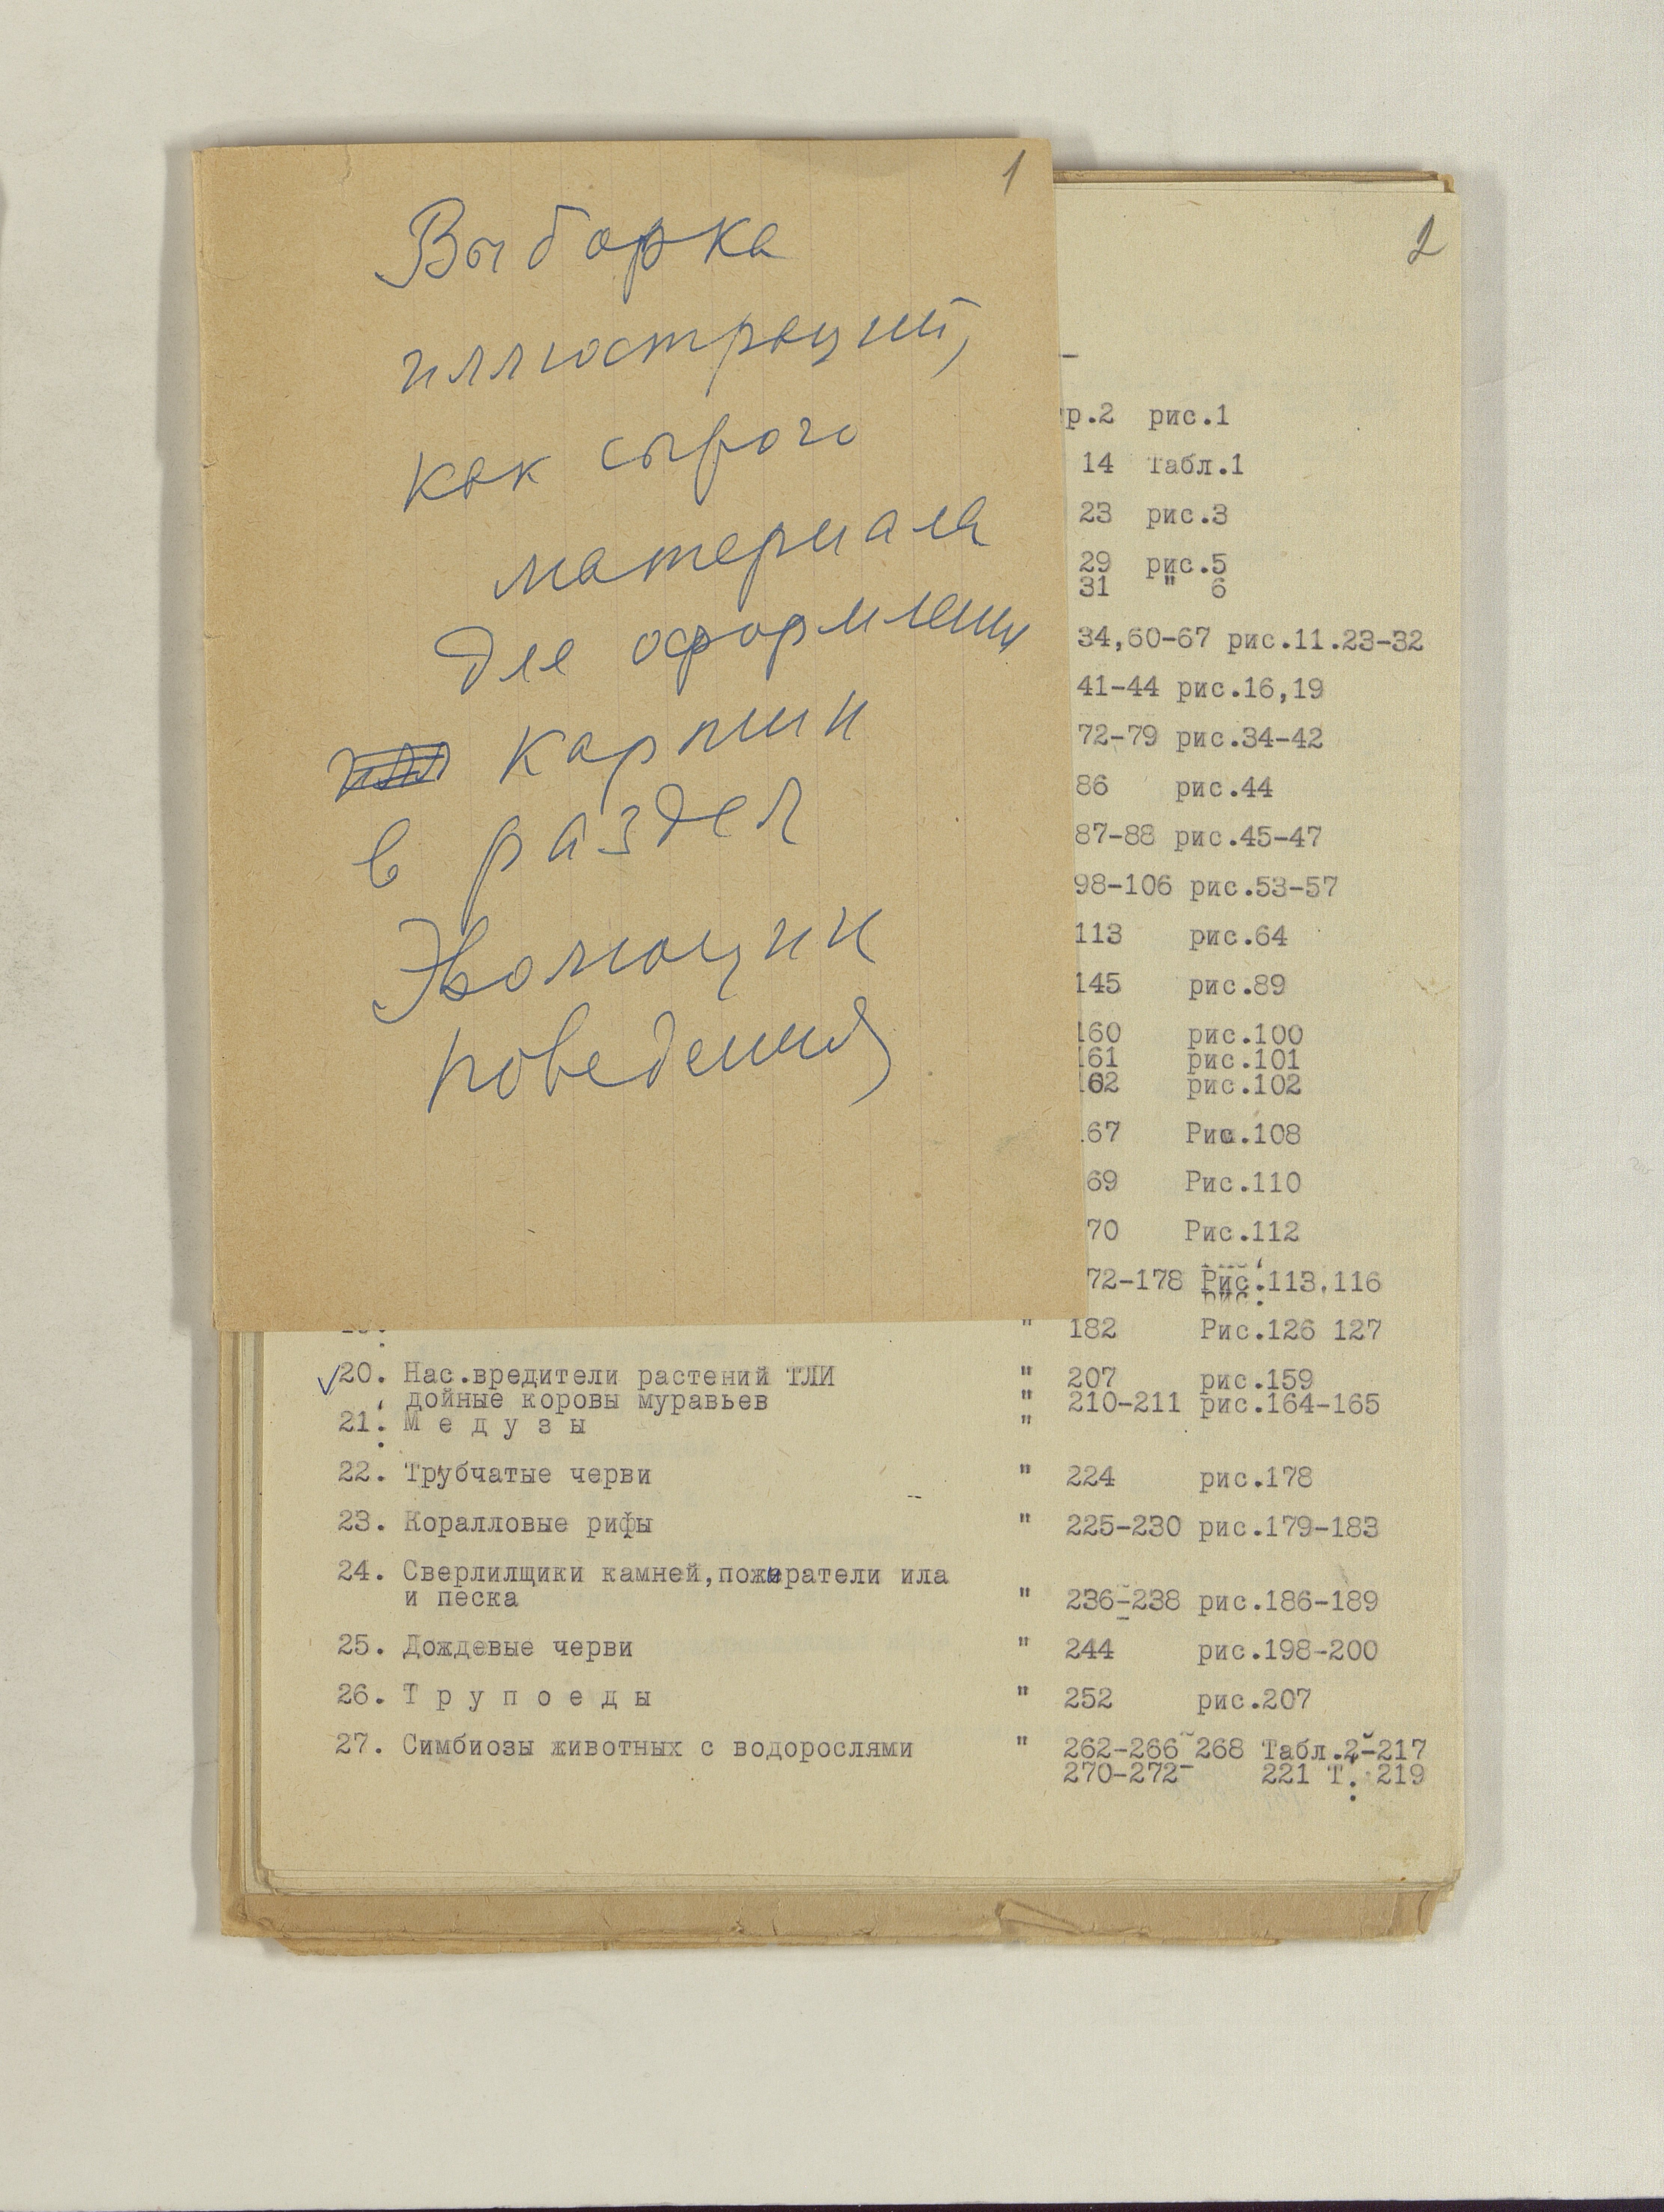 1
Выборка
иллюстраций,
как сырого
материала
для оформления
картин
в раздел
Эволюции
поведения
2
р.2 рис.1
14 Табл.1
23 рис.3
29 рис.5
31 " 6
34,60-67 рис.11.23-32
41-44 рис.16,19
72-79 рис.34-42
86 рис.44
87-88 рис.45-47
98-106 рис.53-57
113 рис.64
145 рис.89
160 рис.100
161 рис.101
162 рис.102
67 Рис.108
69 Рис.110
70 Рис.112
72-178 Рис.113,116
" 182 Рис.126 127
20. Нас.вредители растений ТЛИ " 207 рис.159
дойные коровы муравьев " 210-211 рис.164-165
21. М е д у з ы "
22. Трубчатые черви " 224 рис.178
23. Коралловые рифы " 225-230 рис.179-183
24. Сверлилщики камней,пожиратели ила
и песка " 236-238 рис.186-189
25. Дождевые черви " 244 рис.198-200
26. Т р у п о е д ы " 252 рис.207
27. Симбиозы животных с водорослями " 262-266 268 Табл.2-217
270-272 221 Т. 219